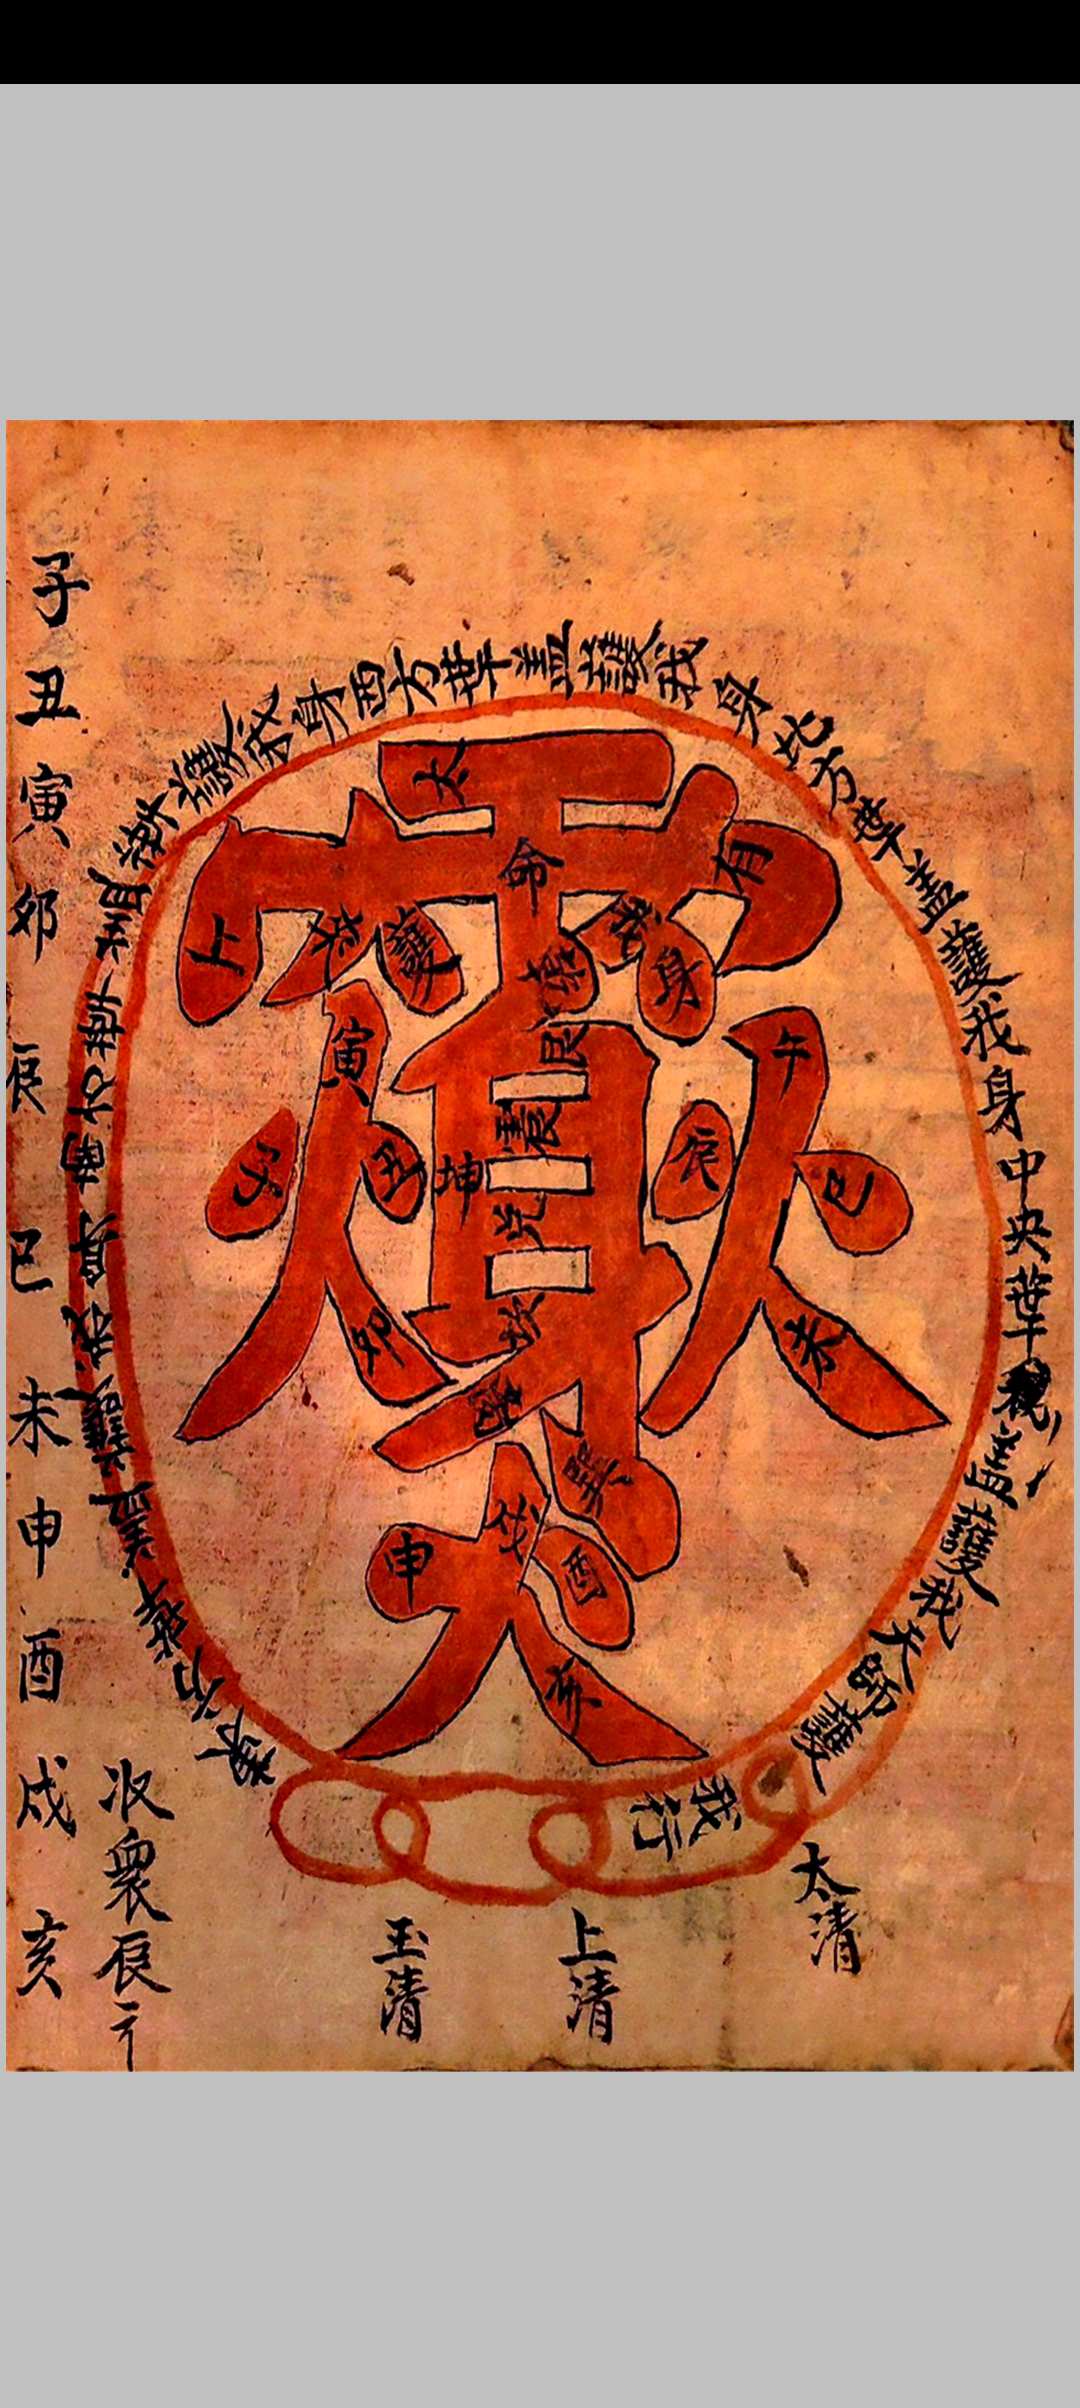 子丑寅卯辰巳未申酉戌亥
衆辰
東方華蓋護我身南方華蓋護我身西方華蓋護我身北方華蓋護我身中央華蓋護我天師護我行
太清
上清
玉清
太
上
命
有
護
我
身
寅
子
丑
卯
坤
艮
震
兌
坎
巽
午
辰
巳
未
申
酉
亥